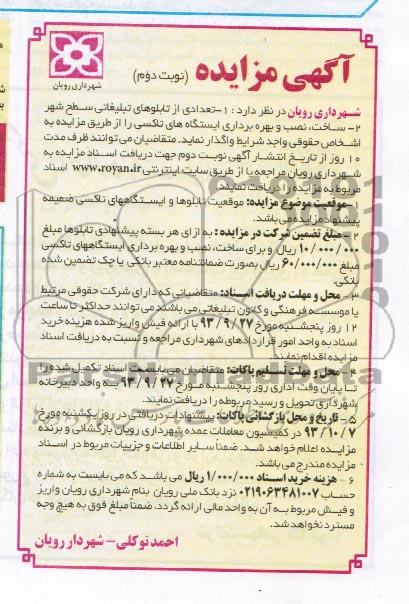 آگهی مزایده (نوبت دوم)
شهرداری رویان
شهرداری رویان در نظر دارد : ۱-تعدادی از تابلوهای تبلیغاتی سطح شهر
۲- ساخت، نصب و بهره برداری ایستگاه های تاکسی را از طریق مزایده به
اشخاص حقوقی واجد شرایط واگذار نماید. متقاضیان می توانند ظرف مدت
۱۰ روز از تاریخ انتشار آگهی نوبت دوم جهت دریافت اسناد مزایده به
شهرداری رویان مراجعه یا از طریق سایت اینترنتی www.royan.ir اسناد
مربوط به مزایده را دریافت نمایند.
۱-موقعیت موضوع مزایده: موقعیت تابلوها و ایستگاههای تاکسی ضمیمه
پیشنهاد مزایده می باشد.
۲-مبلغ تضمین شرکت در مزایده : به ازای هر بسته پیشنهادی تابلوها مبلغ
۱۰/۰۰۰/۰۰۰ ریال و برای ساخت، نصب و بهره برداری ایستگاههای تاکسی
مبلغ ۶۰/۰۰۰/۰۰۰ ریال بصورت ضمانتنامه معتبر بانکی یا چک تضمین شده
بانکی.
۳- محل و مهلت دریافت اسناد: متقاضیانی که دارای شرکت حقوقی مرتبط
یا موسسه فرهنگی و کانون تبلیغاتی می باشند می توانند حداکثر تا ساعت
۱۲ روز پنجشنبه مورخ ۹۳/۹/۲۷ با ارائه فیش واریز شده هزینه خرید
اسناد به واحد امور قراردادهای شهرداری مراجعه و نسبت به دریافت اسناد
مزایده اقدام نمایند.
۴- محل و مهلت تسلیم پاکات: متقاضیان می بایست اسناد تکمیل شده را
تا پایان وقت اداری روز پنجشنبه مورخ ۹۳/۹/۲۷ به واحد دبیرخانه
شهرداری تحویل و رسید مربوطه را دریافت نمایند.
۵ - تاریخ و محل بازگشائی پاکات: پیشنهادات دریافتی در روز یکشنبه مورخ
۹۳/۱۰/۷ در کمیسیون معاملات عمده شهرداری رویان بازگشائی و برنده
مزایده اعلام خواهد شد. ضمناً سایر اطلاعات و جزییات مربوط در اسناد
مزایده مندرج می باشد.
۶ - هزینه خرید اسناد ۱/۰۰۰/۰۰۰ ریال می باشد که می بایست به شماره
حساب ۰۲۱۹۰۶۳۴۸۱۰۰۷ نزد بانک ملی رویان بنام شهرداری رویان واریز
و فیش مربوط به آن به واحد مالی ارائه گردد. ضمناً مبلغ فوق به هیچ وجه
مسترد نخواهد شد.
احمد توکلی- شهردار رویان